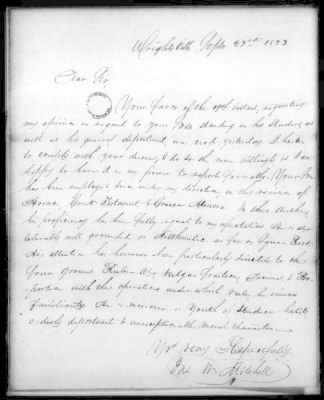 Wrightsville Septr 22nd 1823
Dear Sir
Your favor of the 19th instant requesting
my opinion in regard to your Sons standing in his Studies as
well as his general deportment was recd yesterday. I hasten
to comply with your desires & do so the more willingly as I am
happy to have it in my power to report favorably. Your Son
has been employed here under my direction in the revision of
Horace, Greek Testament & Graeca Minora. In these Authors
his proficiency has been fully equal to my expectations. He is also
tolerably well grounded in Arithmetic as far as Square Root
His attention has however been particularly directed to the
four ground Rules Vulgar Fractions Decimals & Pro-
portion with the operations under which rules, he evinces
familiarity. He is moreover a Youth of Studious habits
orderly deportment & unexceptionable Moral character.
Yr. very Respectfully
Jno W. Mitchell